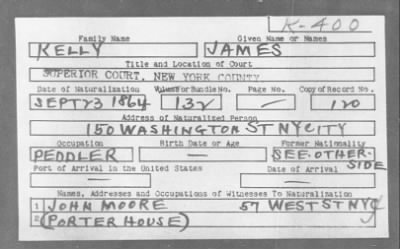 K-400
Family Name Given Name or Names
KELLY JAMES
Title and Location of Court
SUPERIOR COURT, NEW YORK COUNTY
Date of Naturalization Volume or Bundle No. Page No. Copy of Record No.
SEPT 23 1864 132 — 120
Address of Naturalized Person
150 WASHINGTON ST NY CITY
Occupation Birth Date or Age Former Nationality
PEDDLER — SEE OTHER-
SIDE
Port of Arrival in the United States Date of Arrival
— —
Names, Addresses and Occupations of Witnesses To Naturalization
1 JOHN MOORE 57 WEST ST NYC
2 (PORTER HOUSE)